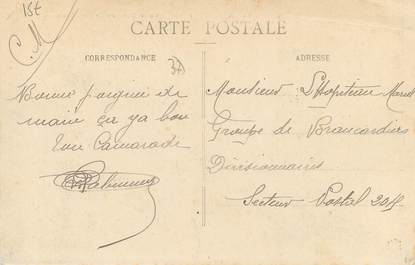 15t
C.M
CARTE POSTALE
CORRESPONDANCE
Bonne poignée de
main ça va bon
Ton Camarade
ADRESSE
Monsieur L'Hopiteau Marcel
Groupe de Brancardiers
Divisionnaires
Secteur Postal